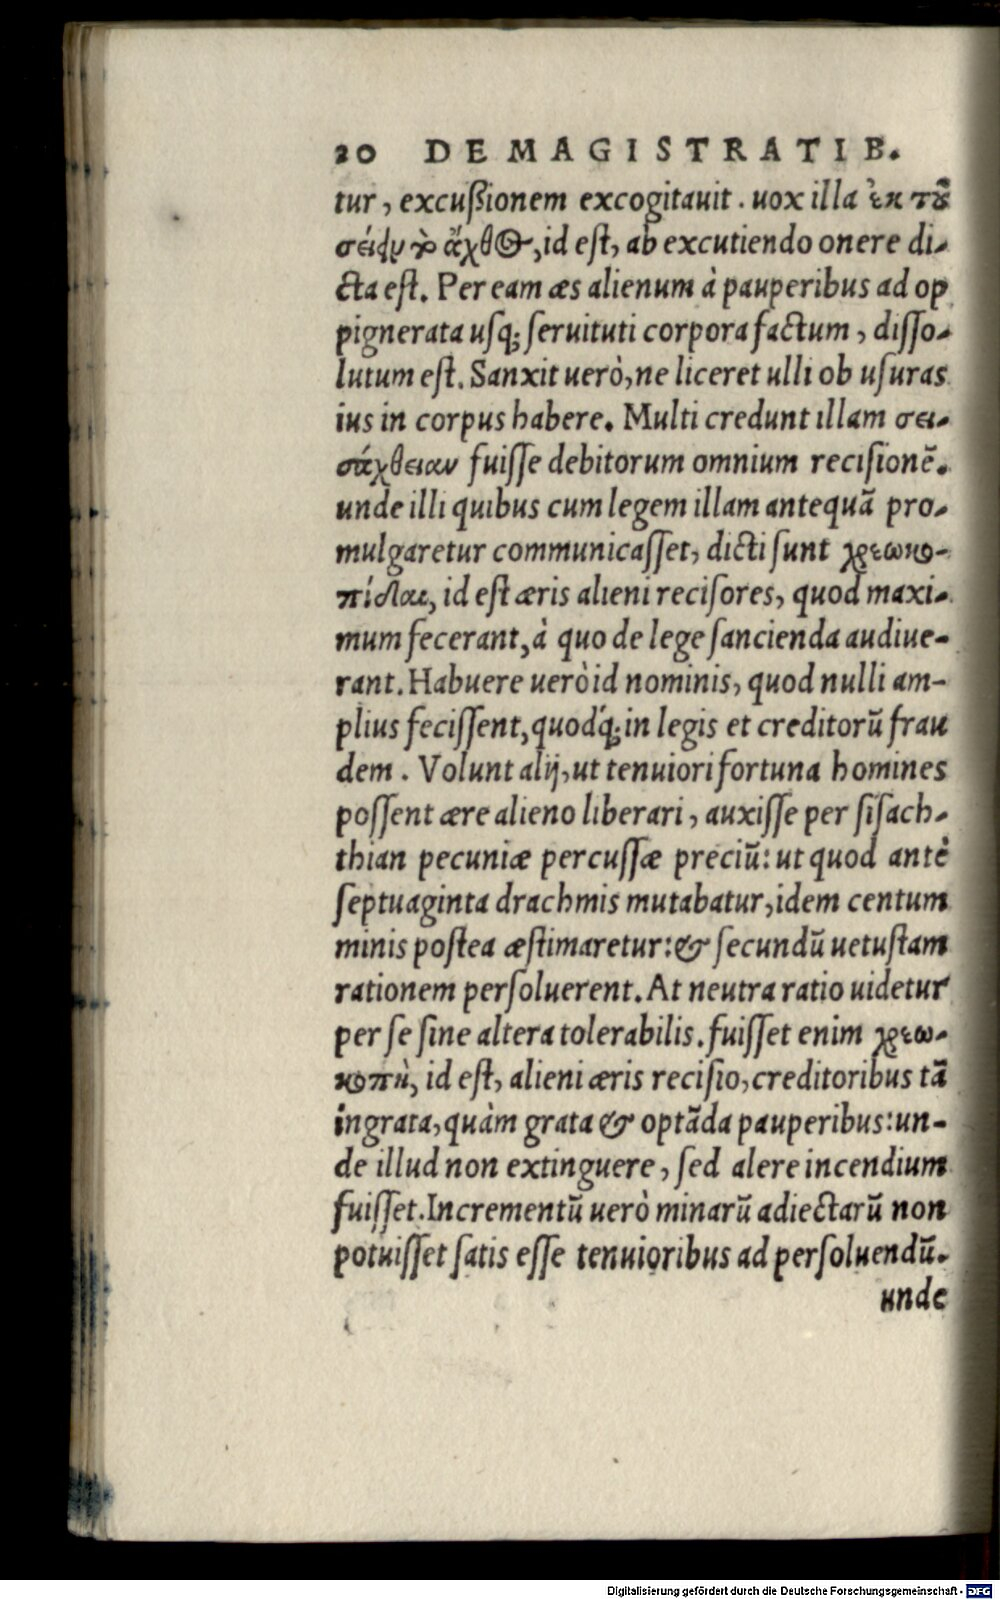 20 DE MAGISTRATIB.
tur, excußionem excogitauit. uox illa ἐκ τοῦ
σείειν τὸ ἄχθος, id est, ab excutiendo onere di-
cta est. Per eam æs alienum à pauperibus ad op
pignerata usq; seruituti corpora factum, disso-
lutum est. Sanxit uerò, ne liceret ulli ob usuras
ius in corpus habere. Multi credunt illam σει-
σάχθειαν fuisse debitorum omnium recisionē.
unde illi quibus cum legem illam antequā pro-
mulgaretur communicasset, dicti sunt χρεωκο-
πίδαι, id est æris alieni recisores, quod maxi-
mum fecerant, à quo de lege sancienda audiue-
rant. Habuere uerò id nominis, quod nulli am-
plius fecissent, quodq́; in legis et creditorū frau
dem. Volunt alij, ut tenuiori fortuna homines
possent ære alieno liberari, auxisse per sisach-
thian pecuniæ percussæ preciū: ut quod antè
septuaginta drachmis mutabatur, idem centum
minis postea æstimaretur: & secundū uetustam
rationem persoluerent. At neutra ratio uidetur
per se sine altera tolerabilis. fuisset enim χρεω-
κοπὴ, id est, alieni æris recisio, creditoribus tā
ingrata, quàm grata & optāda pauperibus: un-
de illud non extinguere, sed alere incendium
fuisset. Incrementū uerò minarū adiectarū non
potuisset satis esse tenuioribus ad persoluendū.
unde
Digitalisierung gefördert durch die Deutsche Forschungsgemeinschaft - DFG